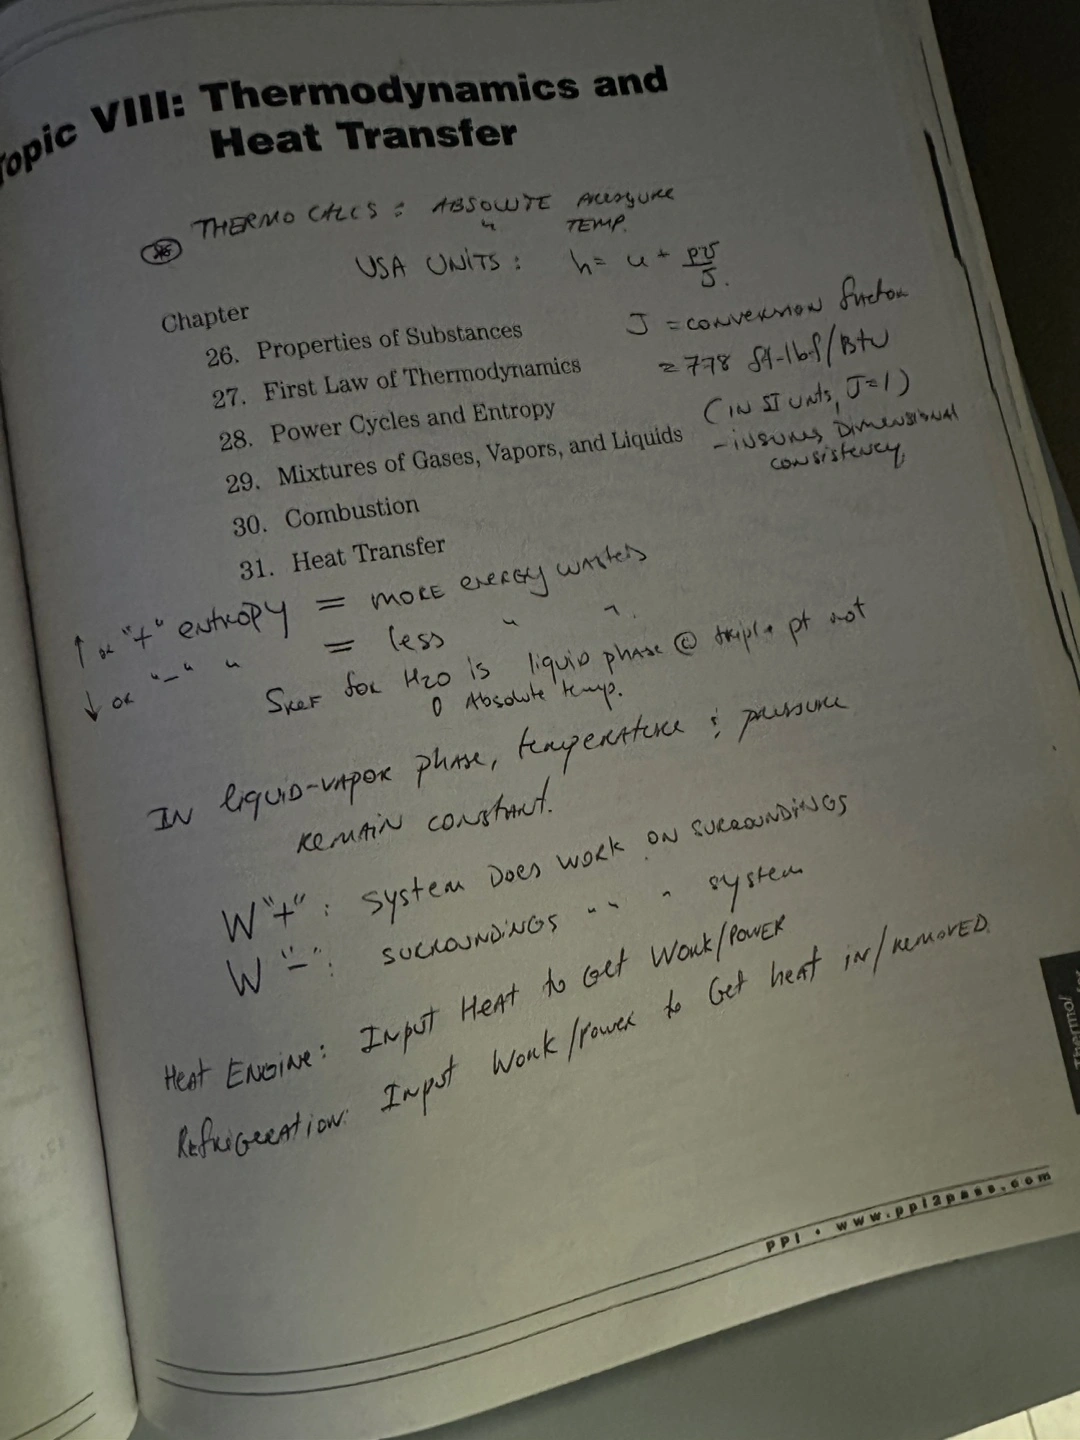 Topic VIII: Thermodynamics and
Heat Transfer
THERMO CALCS : ABSOLUTE PRESSURE
" TEMP.
USA UNITS : h = u + pv/J.
Chapter
26. Properties of Substances
J = CONVERSION factor
27. First Law of Thermodynamics
= 778 ft-lbf/Btu
28. Power Cycles and Entropy
(IN SI Units, J=1)
29. Mixtures of Gases, Vapors, and Liquids
- insures Dimensional
consistency
30. Combustion
31. Heat Transfer
↑ or "+" entropy = more energy wasted
↓ or "-" " = less " "
SREF for H2O is liquid phase @ triple pt not
0 Absolute temp.
IN liquid-vapor phase, temperature & pressure
remain constant.
W "+" : System Does work on surroundings
W "-" : surroundings " " " system
Heat Engine: Input Heat to Get Work/Power
Refrigeration: Input Work/Power to Get heat in/removed.
PPI • www.ppi2pass.com